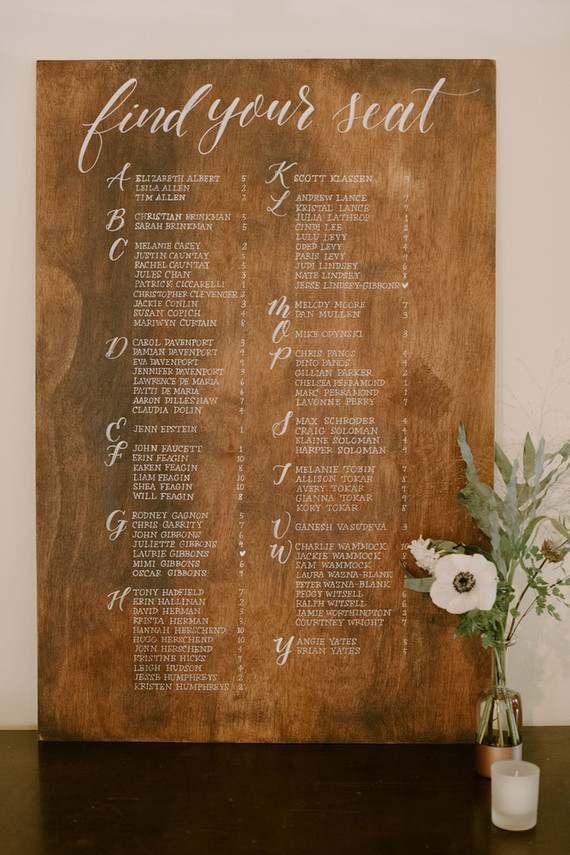 find your seat
A
ELIZABETH ALBERT 5
LEILA ALLEN 2
TIM ALLEN 2
B
CHRISTIAN BRINKMAN 5
SARAH BRINKMAN 5
C
MELANIE CASEY 2
JUSTIN CAUNTAY 5
RACHEL CAUNTAY 5
JULES CHAN 3
PATRICK CICCARELLI 1
CHRISTOPHER CLEVENGER 2
JACKIE CONLIN 3
SUSAN COPICH 4
MARIWYN CURTAIN 8
D
CAROL DAVENPORT 3
DAMIAN DAVENPORT 9
EVA DAVENPORT 9
JENNIFER DAVENPORT 3
LAWRENCE DE MARIA 6
PATTI DE MARIA 6
AARON DILLESHAW 7
CLAUDIA DOLIN 4
E
JENN EPSTEIN 1
F
JOHN FAUCETT 1
ERIN FEAGIN 10
KAREN FEAGIN 8
LIAM FEAGIN 10
SHEA FEAGIN 10
WILL FEAGIN 8
G
RODNEY GAGNON 5
CHRIS GARRITY 7
JOHN GIBBONS 6
JULIETTE GIBBONS 9
LAURIE GIBBONS ♥
MIMI GIBBONS 6
OSCAR GIBBONS 9
H
TONY HADFIELD 7
ERIN HALLINAN 2
DAVID HERMAN 3
KRISTA HERMAN 3
HANNAH HERSCHEND 10
HUGO HERSCHEND 10
JONN HERSCHEND 4
KRISTINE HICKS 7
LEIGH HUDSON 4
JESSE HUMPHREYS 2
KRISTEN HUMPHREYS 2
K
SCOTT KLASSEN
L
ANDREW LANCE
KRISTAL LANCE
JULIA LATHROP
CINDI LEE 2
LULU LEVY 9
ODED LEVY 4
PARIS LEVY
JUDI LINDSEY 6
NATE LINDSEY 8
JESSE LINDSEY-GIBBONS ♥
M
MELODY MOORE 7
DAN MULLEN 3
O
MIKE OPYNSKI 3
P
CHRIS PANOS 4
DINO PANOS 9
GILLIAN PARKER 2
CHELSEA PERRAMOND 1
MARC PERRAMOND 1
LAVONNE PERRY 7
S
MAX SCHRODER 4
CRAIG SOLOMAN 4
ELAINE SOLOMAN 4
HARPER SOLOMAN 9
T
MELANIE TOBIN 7
ALLISON TOKAR 8
AVERY TOKAR 9
GIANNA TOKAR 9
KORY TOKAR 8
V
GANESH VASUDEVA 3
W
CHARLIE WAMMOCK 10
JACKIE WAMMOCK
SAM WAMMOCK
LAURA WAZNA-BLANK
PETER WAZNA-BLANK
PEGGY WITSELL 6
RALPH WITSELL 6
JAMIE WORTHINGTON 2
COURTNEY WRIGHT 7
Y
ANGIE YATES 5
BRIAN YATES 5